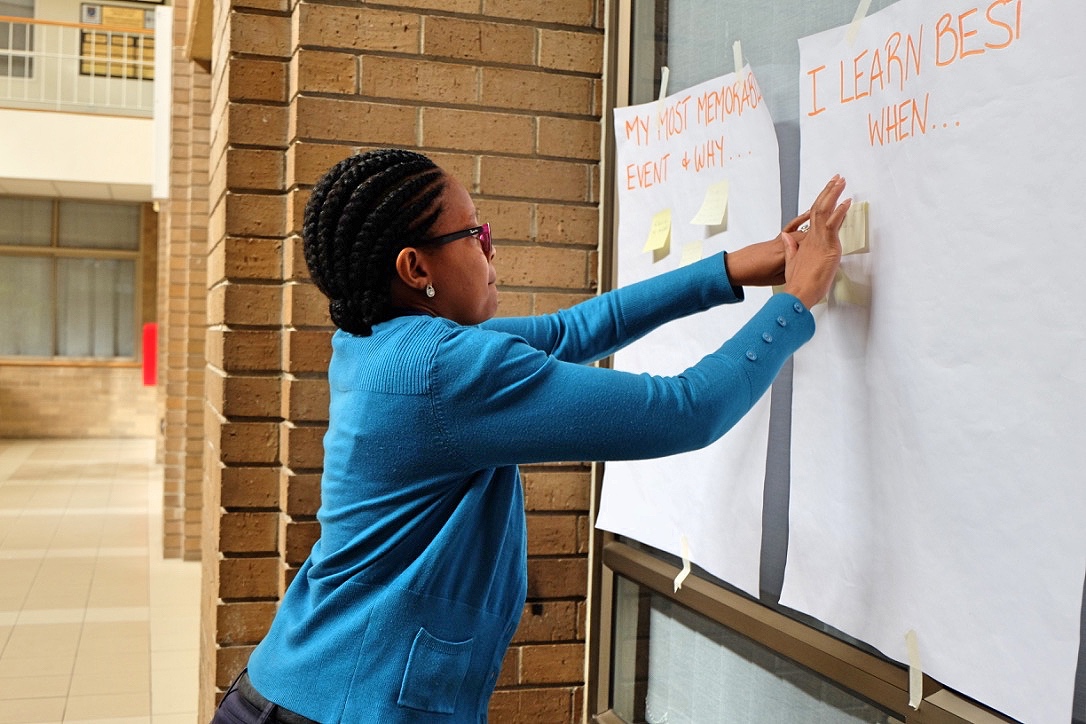 MY MOST MEMORABL
EVENT & WHY....
I LEARN BEST
WHEN...